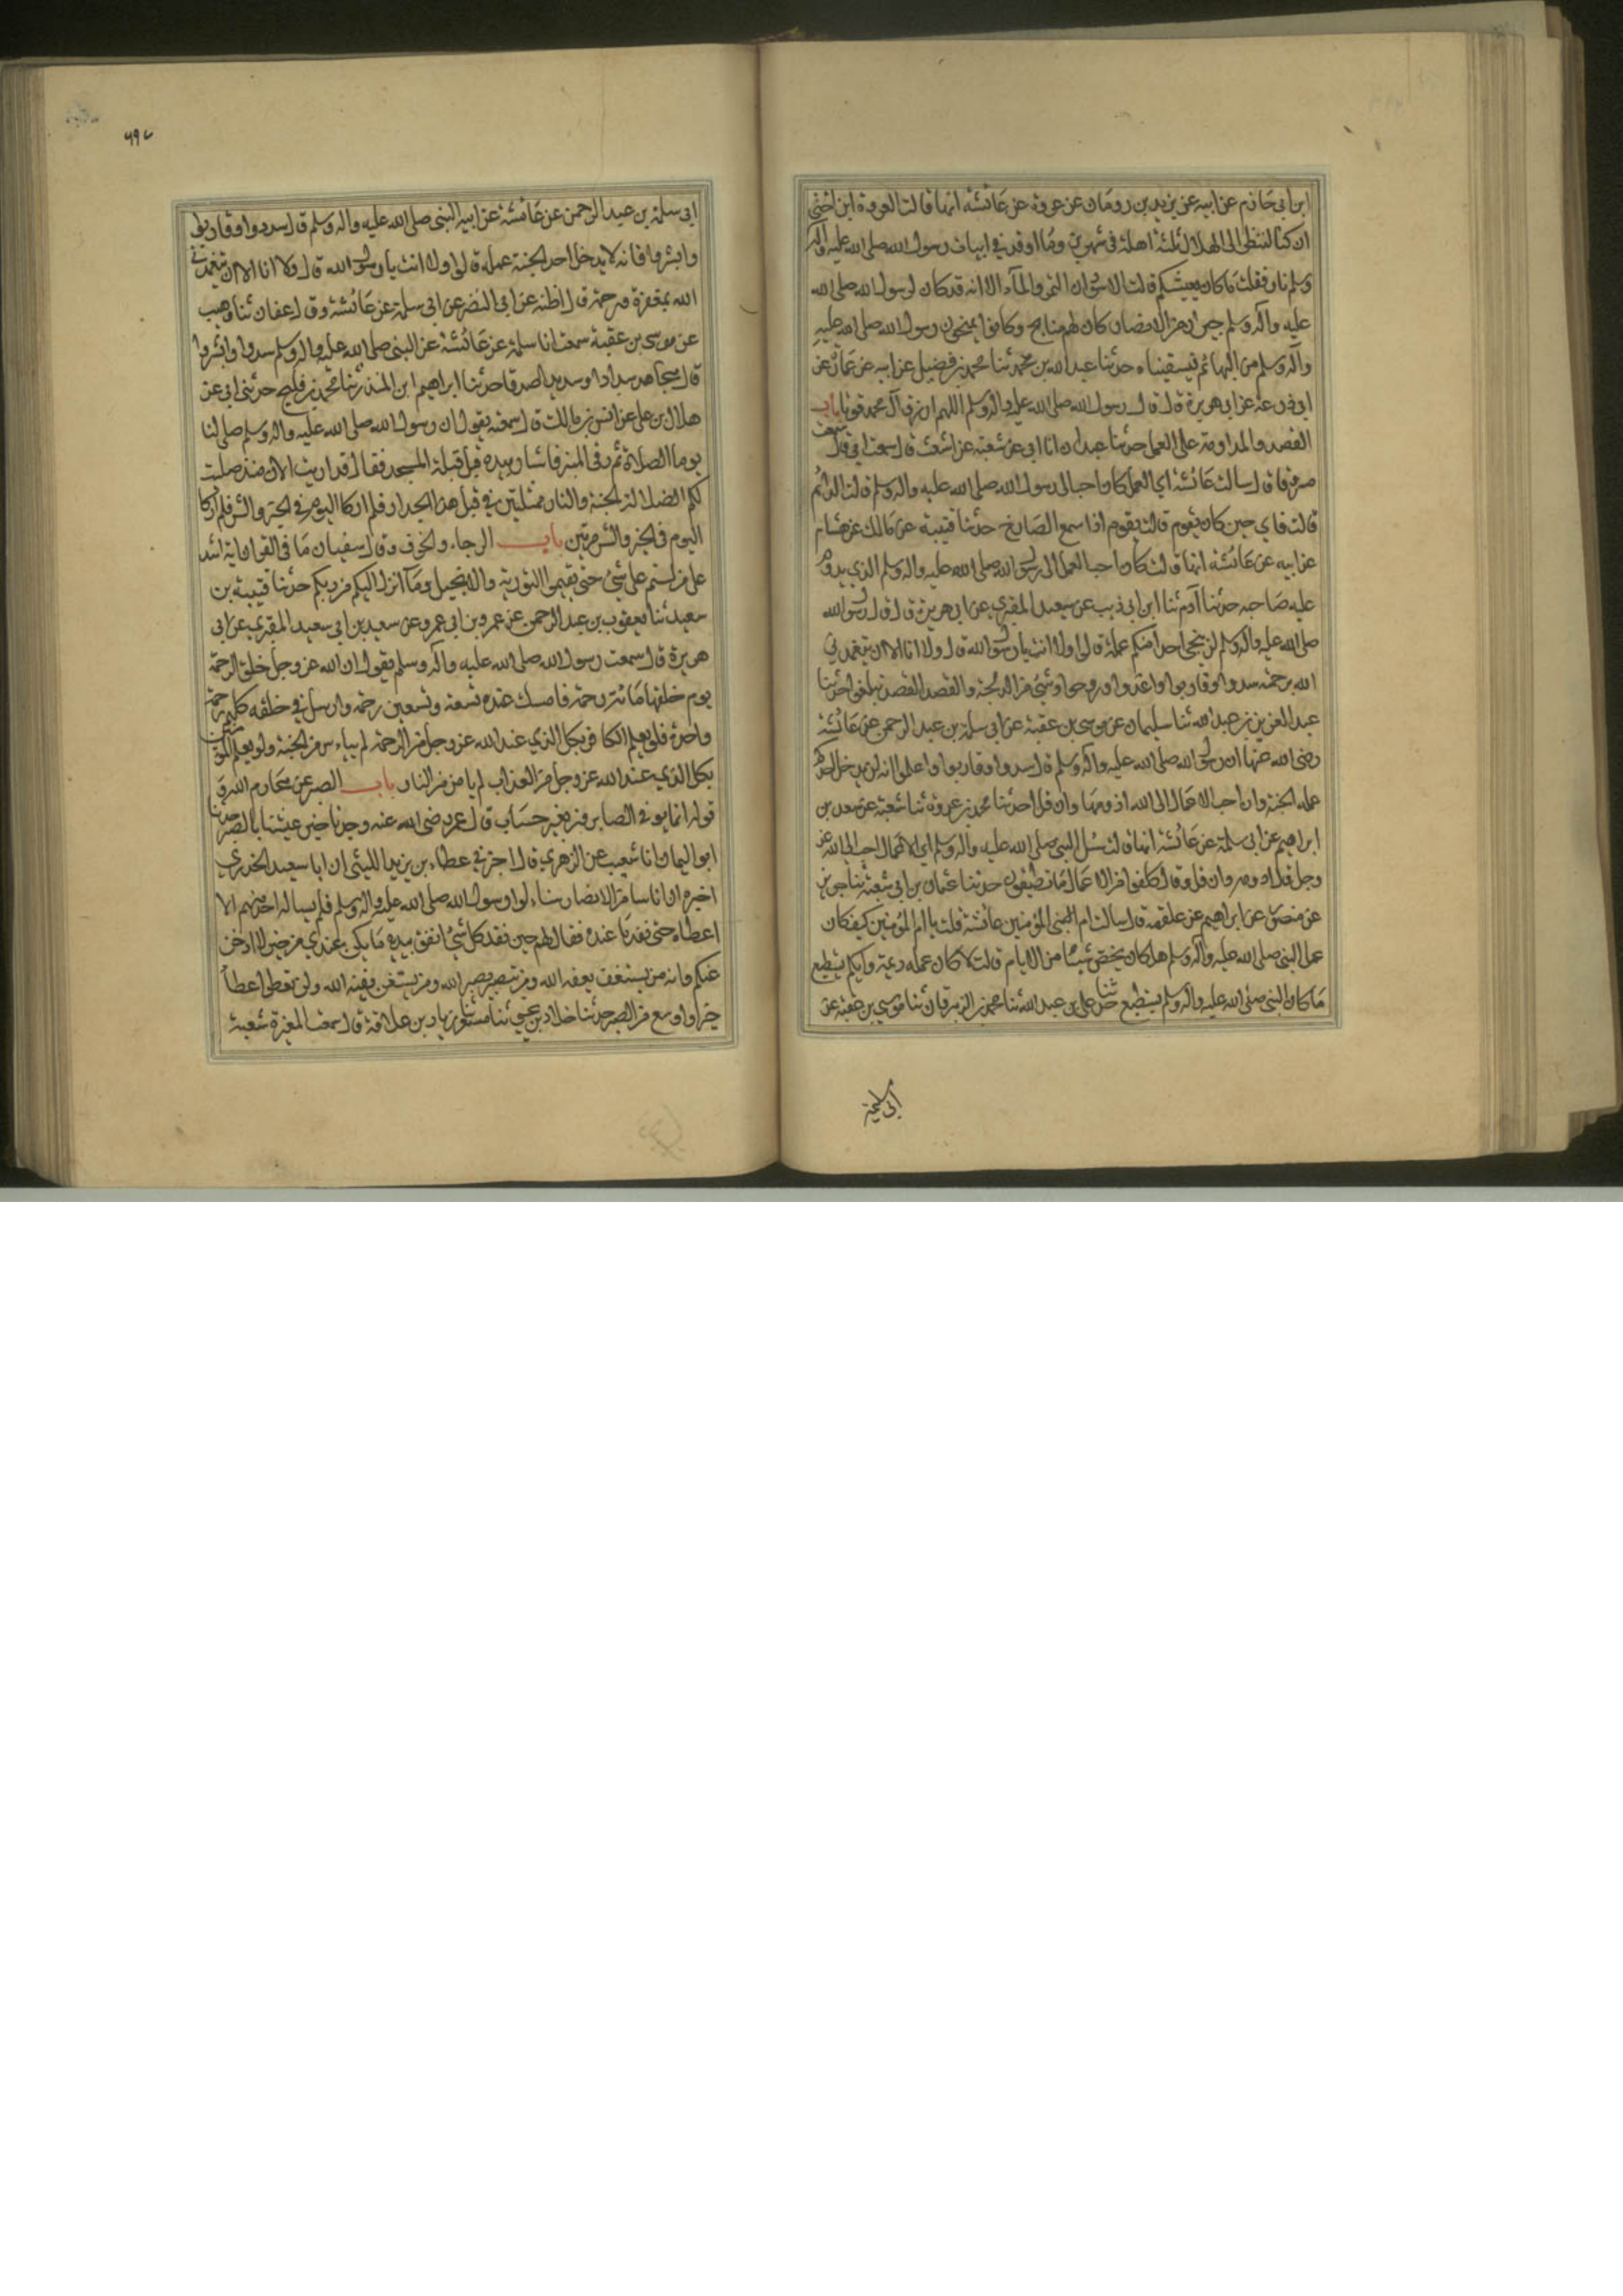 ابن ابى حَازم عن ابيه عن يزيد بن رومَان عن عروة عن عَائشة انها قالت لعروة ابن اختي
ان كنا لننظر الى الهلال ثلثة اهلة فى شهرين ومَا اوقد فى ابيات رسول الله صلى الله عليه وآله
وسلم نار فقلت مَا كان يعيشكم قالت الاسودان التمر والمآء الا انه قد كان لرسول الله صلى الله
عليه وآله وسلم جيران من الانصار كان لهم منايح وكانوا يمنحون رسول الله صلى الله عليه
وآله وسلم من ابياتهم فيسقيناه حدثنا عبد الله بن محمد ثنا محمد بن فضيل عن ابيه عن عمارة عن
ابى زرعة عن ابى هريرة قال قال رسول الله صلى الله عليه واله وسلم اللهم ارزق آل محمد قوتا باب
القصد والمداومة على العمل حدثنا عبدان انا ابى عن شعبة عن اشعث قال سمعت ابى قال سمعت
مسروقا قال سالت عَائشة اي العمل كان احب الى رسول الله صلى الله عليه واله وسلم قالت الدائم
قالت فاي حين كان يقوم قالت يقوم اذا سمع الصَارخ حدثنا قتيبة عن مَالك عن هشام
عن ابيه عن عَائشة انها قالت كان احب العمل الى رسول الله صلى الله عليه واله وسلم الذي يدوم
عليه صَاحبه حدثنا آدم ثنا ابن ابى ذيب عن سعيد المقبري عن ابى هريرة قال قال رسول الله
صلى الله عليه وآله وسلم لن ينجى احدا منكم عمله قالوا ولا انت يا رسول الله قال ولا انا الا ان يتغمدني
الله برحمته سددوا وقاربوا واغدوا وروحوا وشئ من الدلجة والقصد القصد تبلغوا حدثنا
عبد العزيز بن عبد الله ثنا سليمان عن موسى بن عقبة عن ابى سلمة بن عبد الرحمن عن عَائشة
رضى الله عنها ان رسول الله صلى الله عليه وآله وسلم قال سددوا وقاربوا واعلموا انه لن يدخل احدكم
عمله الجنة وان احب الاعمال الى الله ادومها وان قل حدثنا محمد بن عرعرة ثنا شعبة عن سعد بن
ابراهيم عن ابى سلمة عن عَائشة انها قالت سُئل النبى صلى الله عليه واله وسلم اي الاعمال احب الى الله عز
وجل قال ادومه وان قل وقال اكلفوا من الاعمال مَا تطيقون حدثنا عثمان بن ابى شيبة ثنا جرير
عن منصور عن ابراهيم عن علقمة قال سالت ام المؤمنين عائشة قلت يا ام المؤمنين كيف كان
عمل النبى صلى الله عليه وآله وسلم هل كان يخص شيئًا من الايام قالت لا كان عمله ديمة وايكم يستطيع
مَا كان النبى صلى الله عليه وآله وسلم يستطيع حدثنا على بن عبد الله ثنا محمد بن الزبرقان ثنا موسي بن عقبة عن
ابى سلمة
٦٩٧
ابى سلمة بن عبد الرحمن عن عَائشة عن النبى صلى الله عليه واله وسلم قال سددوا وقاربوا
وابشروا فانه لا يدخل احدا الجنة عمله قالوا ولا انت يا رسول الله قال ولا انا الا ان يتغمدنى
الله بمغفرة ورحمة قال اظنه عن ابى النضر عن ابى سلمة عن عَائشة وقال عفان ثنا وهيب
عن موسى بن عقبة سمعت ابا سلمة عن عَائشة عن النبى صلى الله عليه واله وسلم سددوا وابشروا
قال مجاهد سدادا وسديدا صدقا حدثنا ابراهيم ابن المنذر ثنا محمد بن فليح حدثنى ابى عن
هلال بن على عن انس بن مَالك قال سمعته يقول ان رسول الله صلى الله عليه واله وسلم صلى لنا
يوما الصلاة ثم رقى المنبر فاشار بيده قِبَل قبلة المسجد فقال قد اريت الان منذ صليت
لكم الصلاة الجنة والنار ممثلتين في قبل هذا الجدار فلم ار كاليوم في الخير والشر فلم ار كا
اليوم فى الخير والشر مرتين باب الرجاء والخوف وقال سفيان مَا فى القران اية اشد
على من لستم على شئ حتى تقيموا التورية والانجيل ومَا انزل اليكم من ربكم حدثنا قتيبة بن
سعيد ثنا يعقوب بن عبد الرحمن عن عمرو بن ابى عمرو عن سعيد بن ابى سعيد المقبري عن ابى
هريرة قال سمعت رسول الله صلى الله عليه وآله وسلم يقول ان الله عز وجل خلق الرحمة
يوم خلقها مَائة رحمة فامسك عنده تسعة وتسعين رحمة وارسل في خلقه كلهم رحمة
واحدة فلو يعلم الكافر بكل الذي عند الله عز وجل من الرحمة لم يياس من الجنة ولو يعلم المؤمن
بكل الذي عند الله عز وجل من العذاب لم يامن من النار باب الصبر عن محَارم الله و
قوله انما يوفى الصابرون بغير حساب قال عمر رضى الله عنه وجدنا خير عيشنا بالصبر حدثنا
ابو اليمان انا شعيب عن الزهري قال اخبرنى عطاء بن يزيد الليثى ان ابا سعيد الخدري
اخبره ان اناسا من الانصار سالوا رسول الله صلى الله عليه واله وسلم فلم يساله احد منهم الا
اعطاه حتى نفد مَا عنده فقال لهم حين نفد كل شئ انفق بيده مَا يكن عندي من خير لا ادخره
عنكم وانه من يستعف يعفه الله ومن يتصبر يصبره الله ومن يستغن يغنه الله ولن تعطوا عطاءً
خيرا واوسع من الصبر حدثنا خلاد بن يحيى ثنا مسعر ثنا زياد بن علاقة قال سمعت المغيرة شعبة